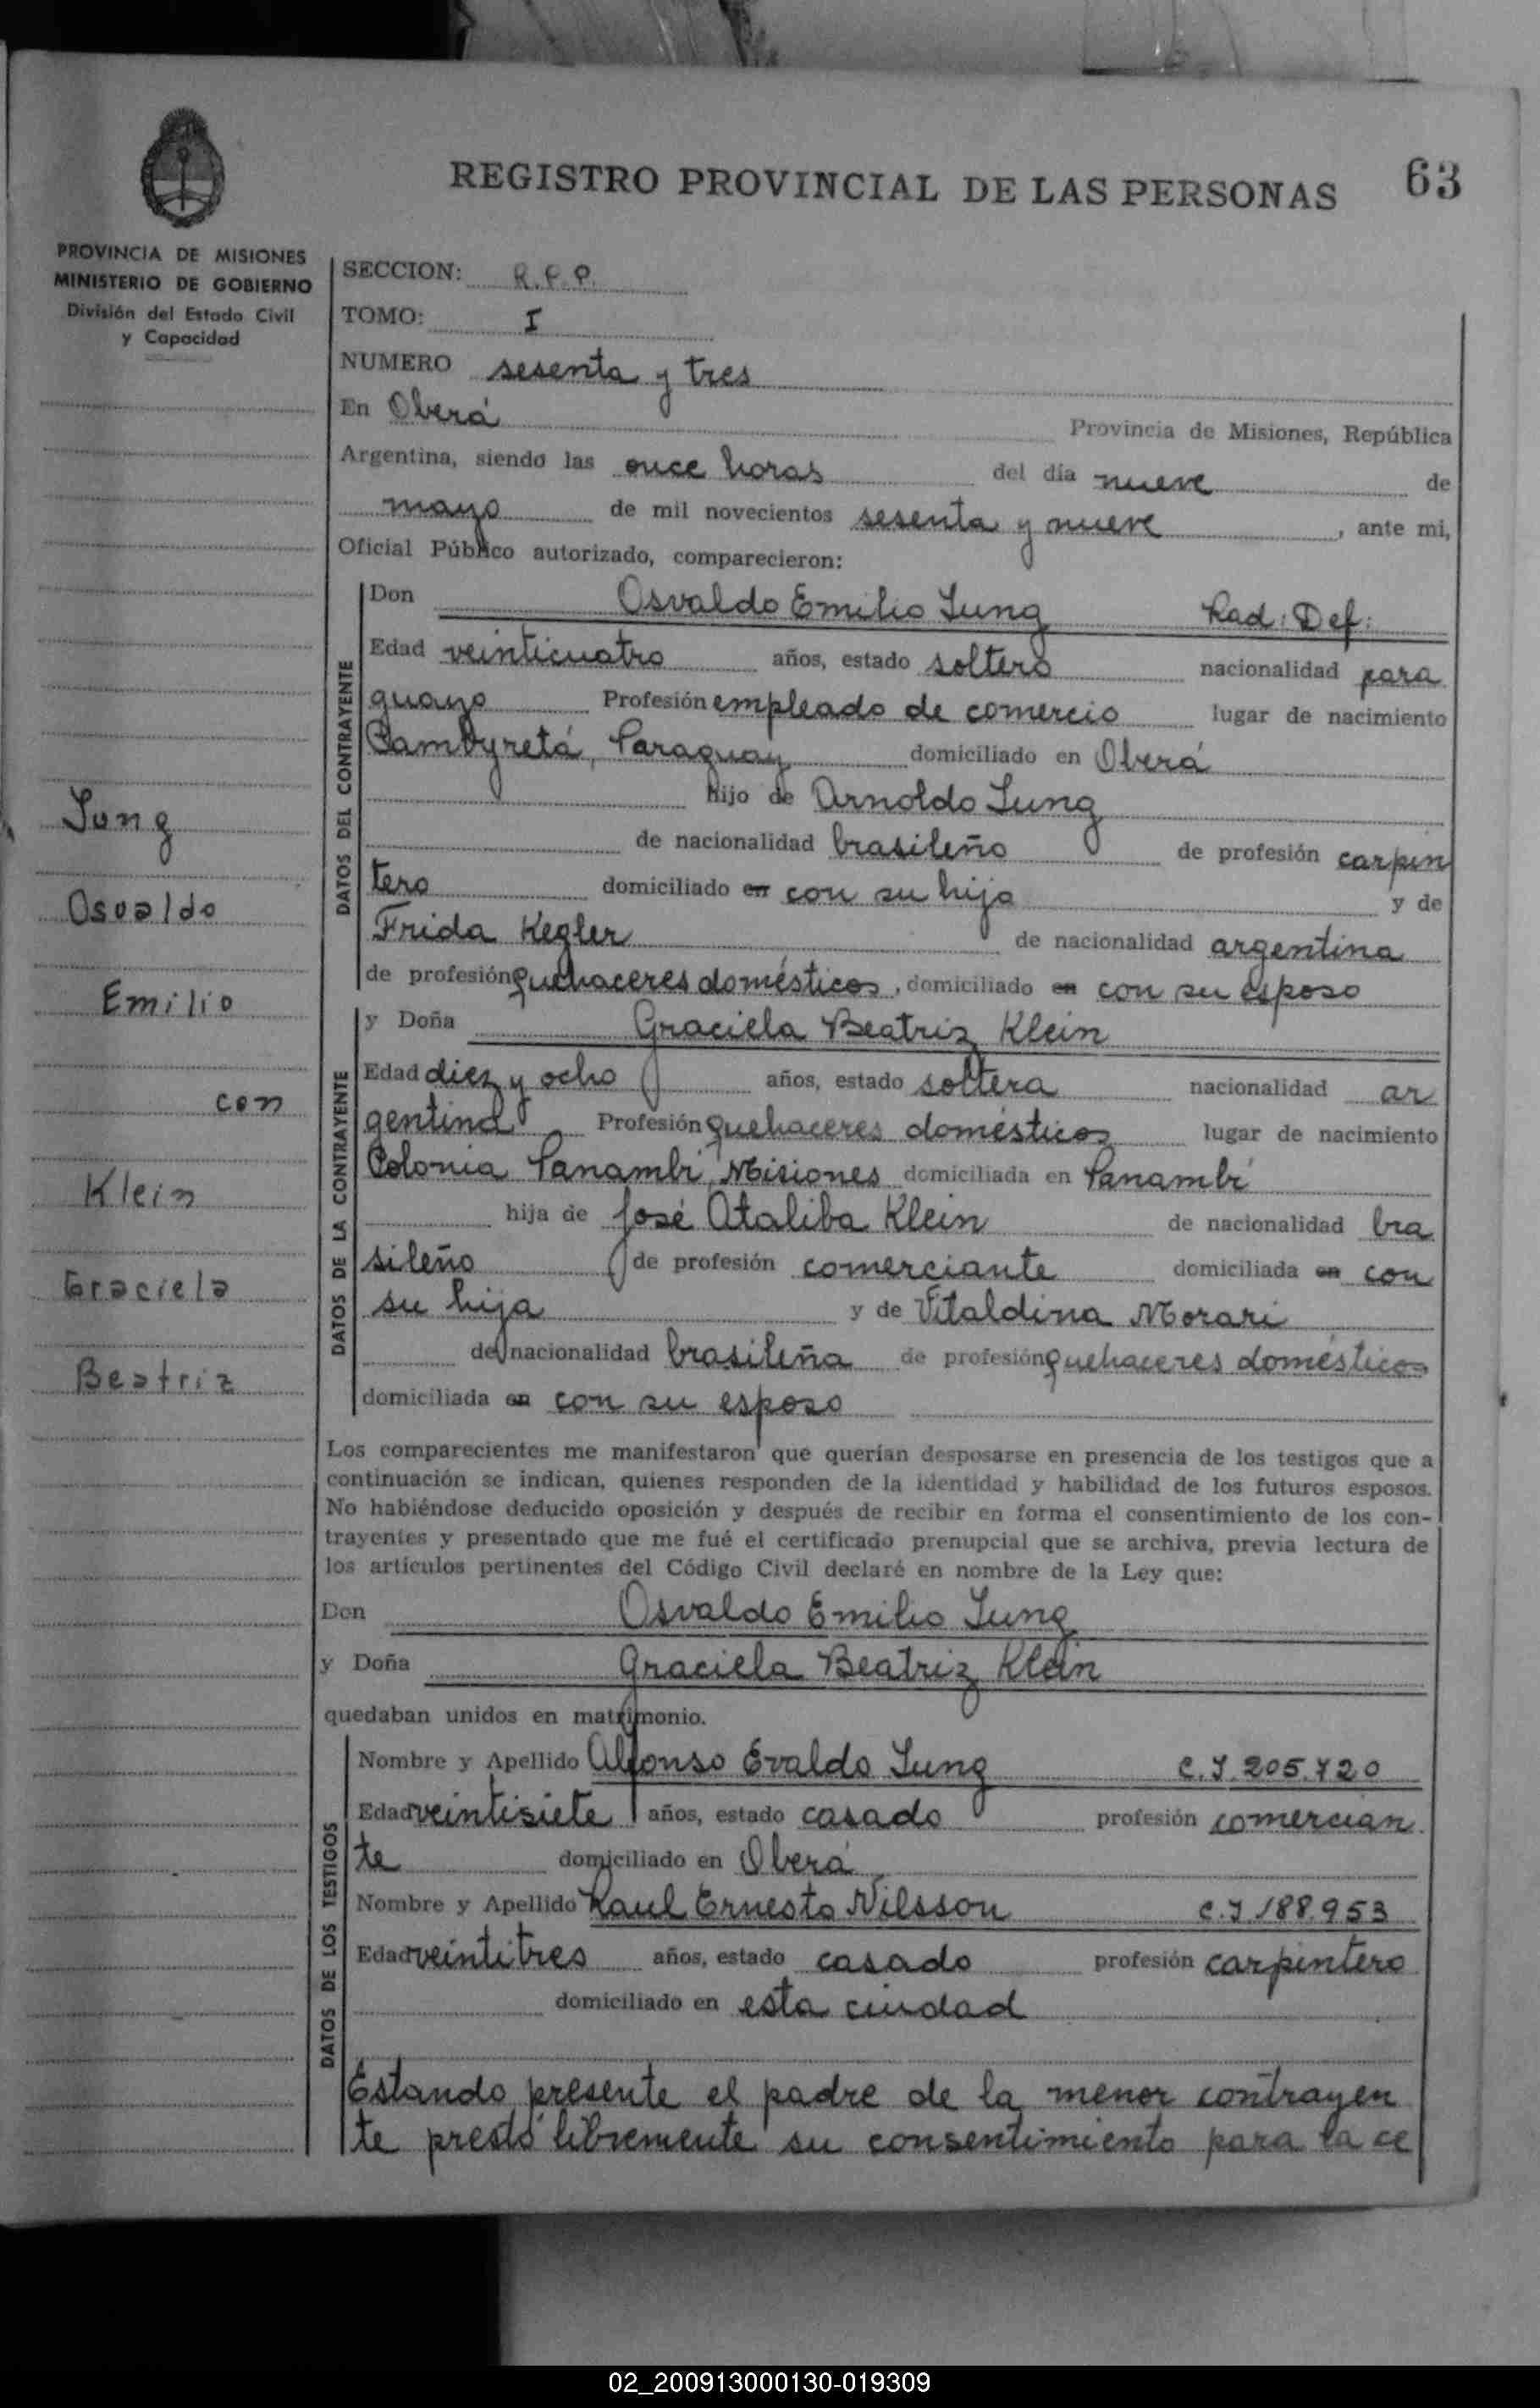 REGISTRO PROVINCIAL DE LAS PERSONAS 63
PROVINCIA DE MISIONES
MINISTERIO DE GOBIERNO
División del Estado Civil
y Capacidad
Jung
Osvaldo
Emilio
con
Klein
Graciela
Beatriz
SECCION: R.P.P.
TOMO: I
NUMERO sesenta y tres
En Oberá Provincia de Misiones, República
Argentina, siendo las once horas del día nueve de
mayo de mil novecientos sesenta y nueve, ante mi,
Oficial Público autorizado, comparecieron:
DATOS DEL CONTRAYENTE
Don Osvaldo Emilio Jung Rad: Def:
Edad veinticuatro años, estado soltero nacionalidad para
guayo Profesión empleado de comercio lugar de nacimiento
Cambyretá, Paraguay domiciliado en Oberá
hijo de Arnoldo Jung
de nacionalidad brasileño de profesión carpin
tero domiciliado en con su hijo y de
Frida Kegler de nacionalidad argentina
de profesión quehaceres domésticos, domiciliado en con su esposo
DATOS DE LA CONTRAYENTE
y Doña Graciela Beatriz Klein
Edad diez y ocho años, estado soltera nacionalidad ar
gentina Profesión quehaceres domésticos lugar de nacimiento
Colonia Panambí, Misiones domiciliada en Panambí
hija de José Ataliba Klein de nacionalidad bra
sileño de profesión comerciante domiciliada en con
su hija y de Vitaldina Morari
de nacionalidad brasileña de profesión quehaceres domésticos
domiciliada en con su esposo
Los comparecientes me manifestaron que querían desposarse en presencia de los testigos que a
continuación se indican, quienes responden de la identidad y habilidad de los futuros esposos.
No habiéndose deducido oposición y después de recibir en forma el consentimiento de los con-
trayentes y presentado que me fué el certificado prenupcial que se archiva, previa lectura de
los artículos pertinentes del Código Civil declaré en nombre de la Ley que:
Don Osvaldo Emilio Jung
y Doña Graciela Beatriz Klein
quedaban unidos en matrimonio.
DATOS DE LOS TESTIGOS
Nombre y Apellido Alfonso Evaldo Jung C.I. 205.720
Edad veintisiete años, estado casado profesión comercian
te domiciliado en Oberá
Nombre y Apellido Raul Ernesto Nilsson C.I 188.953
Edad veintitres años, estado casado profesión carpintero
domiciliado en esta ciudad
Estando presente el padre de la menor contrayen
te prestó libremente su consentimiento para la ce
02_200913000130-019309